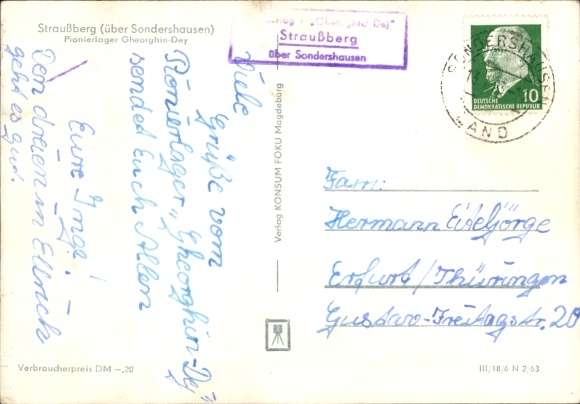 Straußberg (über Sondershausen)
Pionierlager Gheorghin-Dey
"Gheorghin Dej"
Straußberg
über Sondershausen
SONDERSHAUSEN
LAND
10
DEUTSCHE
DEMOKRATISCHE REPUBLIK
Viele
Grüße vom
Pionierlager „Gheorghin-Dej"
sendet Euch Allen
Eure Inge!
Den dreien in Ellrich
geht es gut.
Verlag KONSUM FOKU Magdeburg
Fam:
Hermann Eiteljörge
Erfurt/Thüringen
Gustav-Freitagstr. 20
Verbraucherpreis DM –,20
III, 18,6 N 2,63